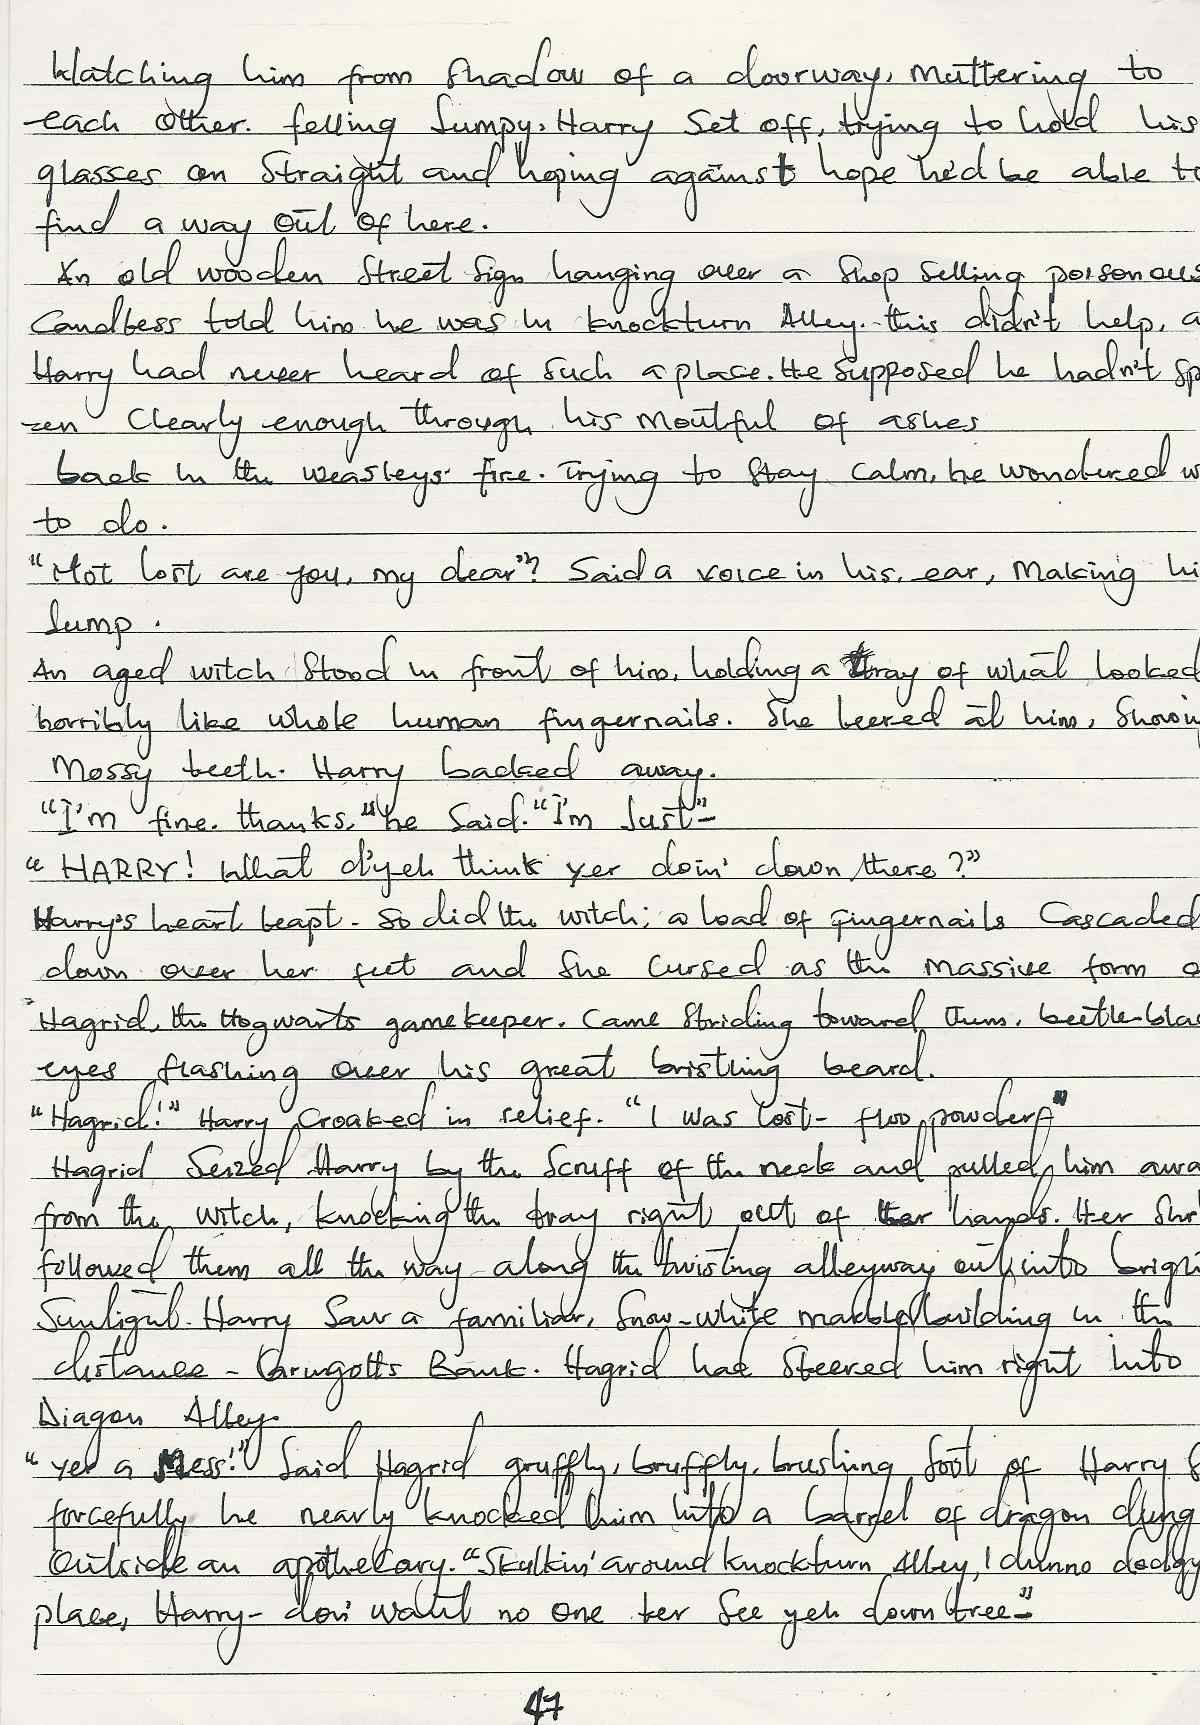 Watching him from shadow of a doorway, muttering to
each other. felling Jumpy, Harry Set off, trying to hold his
glasses on Straight and hoping against hope he'd be able to
find a way out of here.
An old wooden Street Sign hanging over a Shop Selling poisonous
Candless told him he was in knockturn Alley. this didn't help, a
Harry had never heard of Such a place. He Supposed he hadn't sp
-zen Clearly enough through his Moutful of ashes
back in the weasleys' fire. Trying to Stay Calm, he wondered w
to do.
"Not lost are you, my dear"? Said a voice in his, ear, Making hi
Jump.
An aged witch Stood in front of him, holding a tray of what looked
horribly like whole human fingernails. She leered at him, Showi
Mossy teeth. Harry backed away.
"I'm fine. thanks," he Said. "I'm Just-"
"HARRY! What d'yeh think yer doin' down there?"
Harry's heart leapt. So did the witch; a load of fingernails Cascaded
down over her feet and She Cursed as the Massive form o
Hagrid, the Hogwarts gamekeeper. Came Striding toward them, beetle-blac
eyes flashing over his great bristling beard.
"Hagrid!" Harry Croaked in relief. "I was lost- floo powder-"
Hagrid Seized Harry by the Scruff of the neck and pulled him awa
from the witch, knocking the tray right out of her hands. Her Shri
followed them all the way along the twisting alleyway out into brigh
Sunlight. Harry Saw a familiar, Snow-white marble building in the
distance - Gringotts Bank. Hagrid had Steered him right into
Diagon Alley.
"Yer a Mess!" Said Hagrid gruffly, bruffly, brushing Soot of Harry S
forcefully he nearly knocked him into a barrel of dragon dung
Outside an apothecary. "Skulkin' around knockturn Alley, I dunno dodgy
place, Harry- don' want no one ter See yeh down tree-"
47